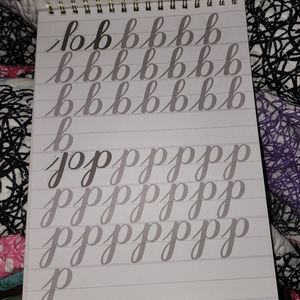 lo b b b b b
b b b b b b b
b b b b b b b
b
p p p p p p
p p p p p p p
p p p p p p p
p